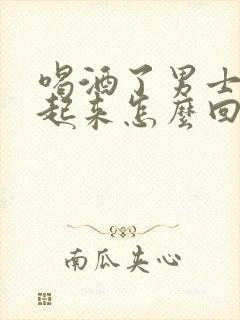 喝酒了男士
起来怎麼回
南瓜夹心